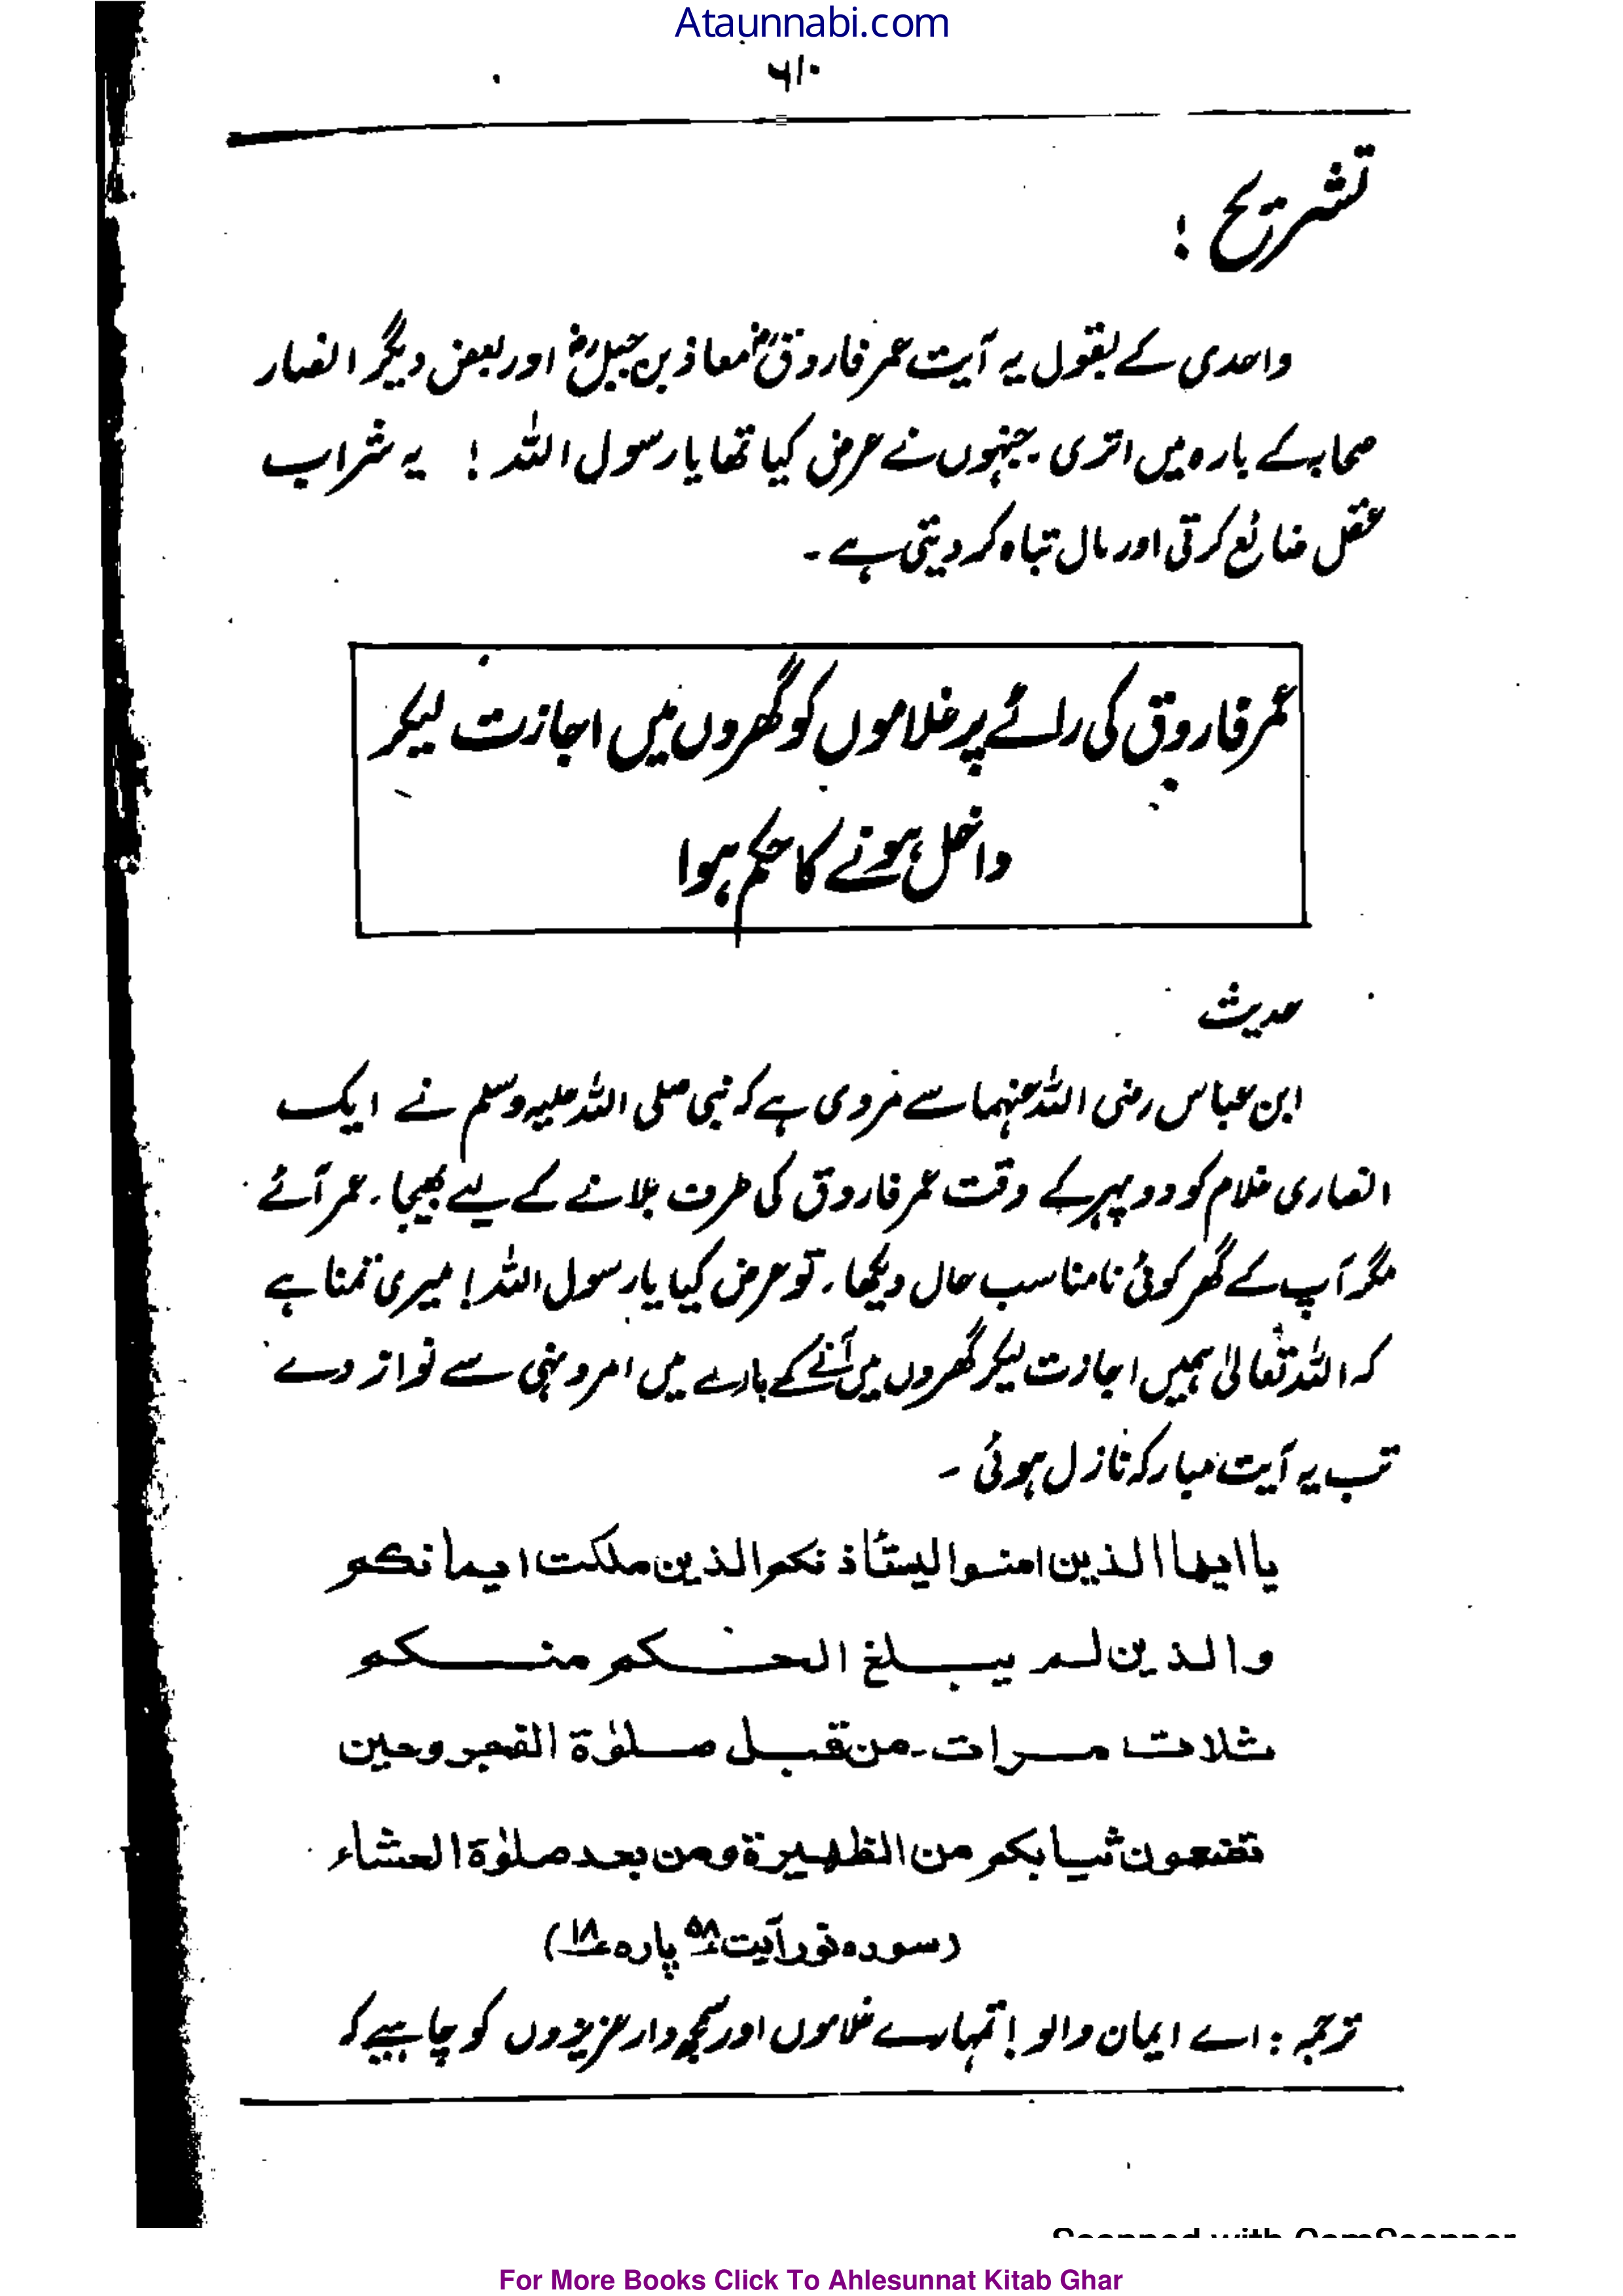 Ataunnabi.com
۶۱۰
تشریح :
واحدی کے بقول یہ آیت عمر فاروقؓ معاذ بن جبلؓ اور بعض دیگر انصار
صحابہ کے بارہ میں اتری ۔ جنہوں نے عرض کیا تھا یا رسول اللہ ! یہ شراب
عقل ضائع کرتی اور مال تباہ کر دیتی ہے ۔
عمر فاروق کی رائے پر غلاموں کو گھروں میں اجازت لیکر
داخل ہونے کا حکم ہوا
حدیث
ابن عباس رضی اللہ عنہما سے مروی ہے کہ نبی صلی اللہ علیہ وسلم نے ایک
انصاری غلام کو دوپہر کے وقت عمر فاروق کی طرف بلانے کے لیے بھیجا ۔ عمر آئے
مگر آپ کے گھر کوئی نامناسب حال دیکھا ۔ تو عرض کیا یا رسول اللہ ! میری تمنا ہے
کہ اللہ تعالیٰ ہمیں اجازت لیکر گھروں میں آنے کے بارے میں امر و نہی سے نواز دے
تب یہ آیت مبارکہ نازل ہوئی ۔
یا ایها الذین امنوا لیستأذنکم الذین ملکت ایمانکم
والذین لم یبلغ الحکم منکم
ثلاث مرات ۔ من قبل صلوٰة الفجر وحین
تضعون ثیابکم من الظهیرة ومن بعد صلوٰة العشاء
(سورہ نور آیت ۵۸ پارہ ۱۸)
ترجمہ : اے ایمان والو ! تمہارے غلاموں اور سمجھ دار عزیزوں کو چاہیے کہ
Scanned with CamScanner
For More Books Click To Ahlesunnat Kitab Ghar